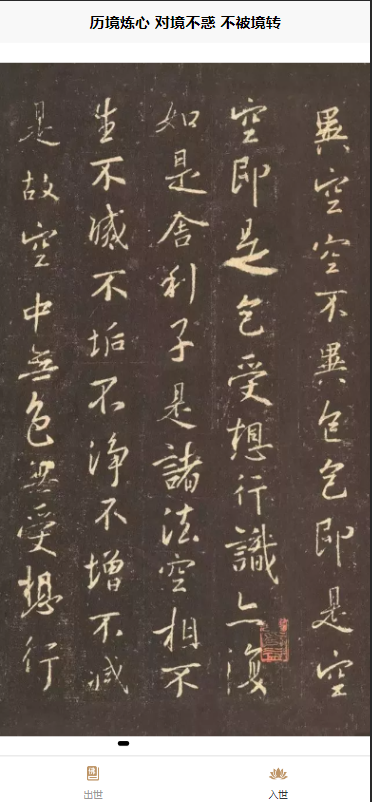 历境炼心 对境不惑 不被境转
異空空不異色色即是空
空即是色受想行識亦復
如是舍利子是諸法空相不
生不滅不垢不淨不增不减
是故空中無色無受想行
出世
入世